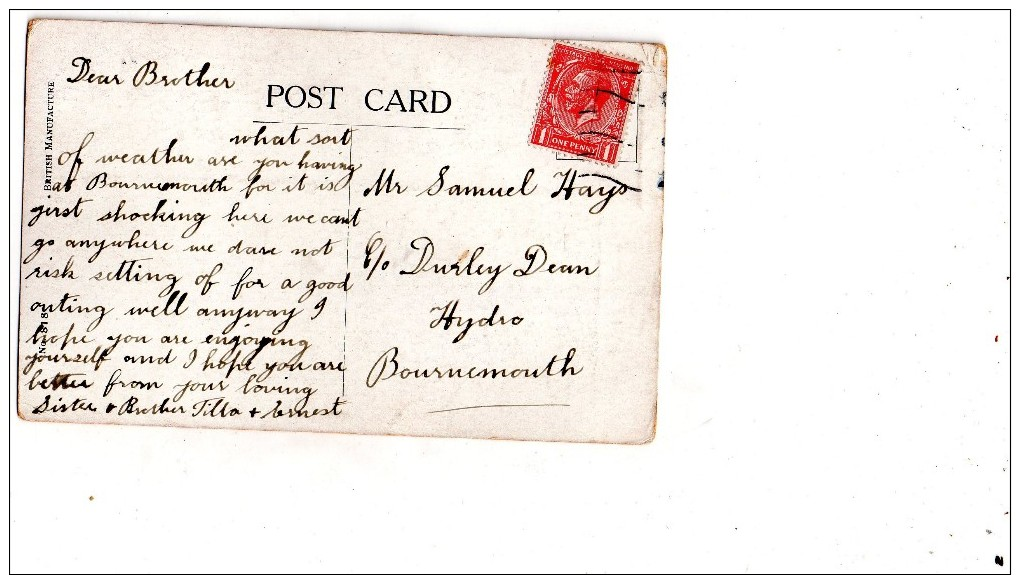 Dear Brother
POST CARD
BRITISH MANUFACTURE
what sort
of weather are you having
at Bournemouth for it is
just shocking here we cant
go anywhere we dare not
risk setting of for a good
outing well anyway I
hope you are enjoying
yourself and I hope you are
better from your loving
Sister & Brother Tilla & Ernest
Mr Samuel Hays
C/o Durley Dean
Hydro
Bournemouth
1 ONE PENNY 1